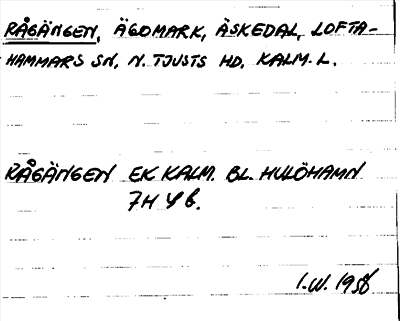 RÅGÄNGEN, ÄGOMARK, ÄSKEDAL, LOFTA-
HAMMARS SN, N. TJUSTS HD, KALM. L.
RÅGÄNGEN EK KALM. BL. HULÖHAMN
7H 4 6.
I.W. 1958